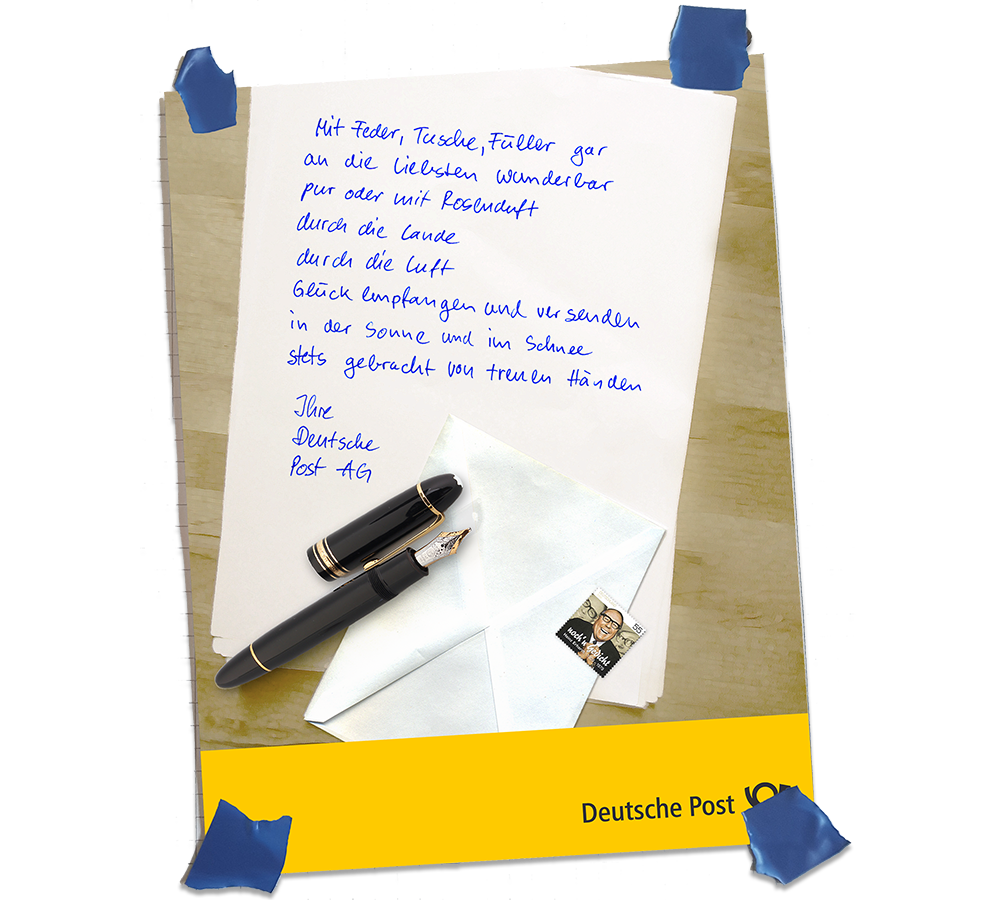 Mit Feder, Tusche, Füller gar
an die Liebsten wunderbar
pur oder mit Rosenduft
durch die Lande
durch die Luft
Glück empfangen und versenden
in der Sonne und im Schnee
stets gebracht von treuen Händen
Ihre
Deutsche
Post AG
55
noch'n Gedicht
Deutsche Post